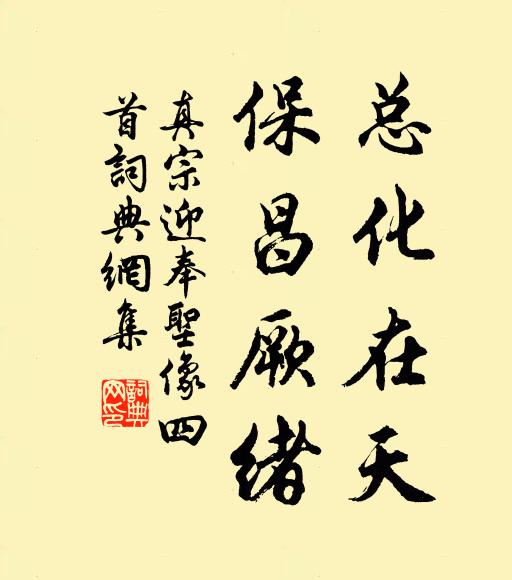 总化在天
保昌厥绪
真宗迎奉聖像四
首詞典網集
詞典
网印